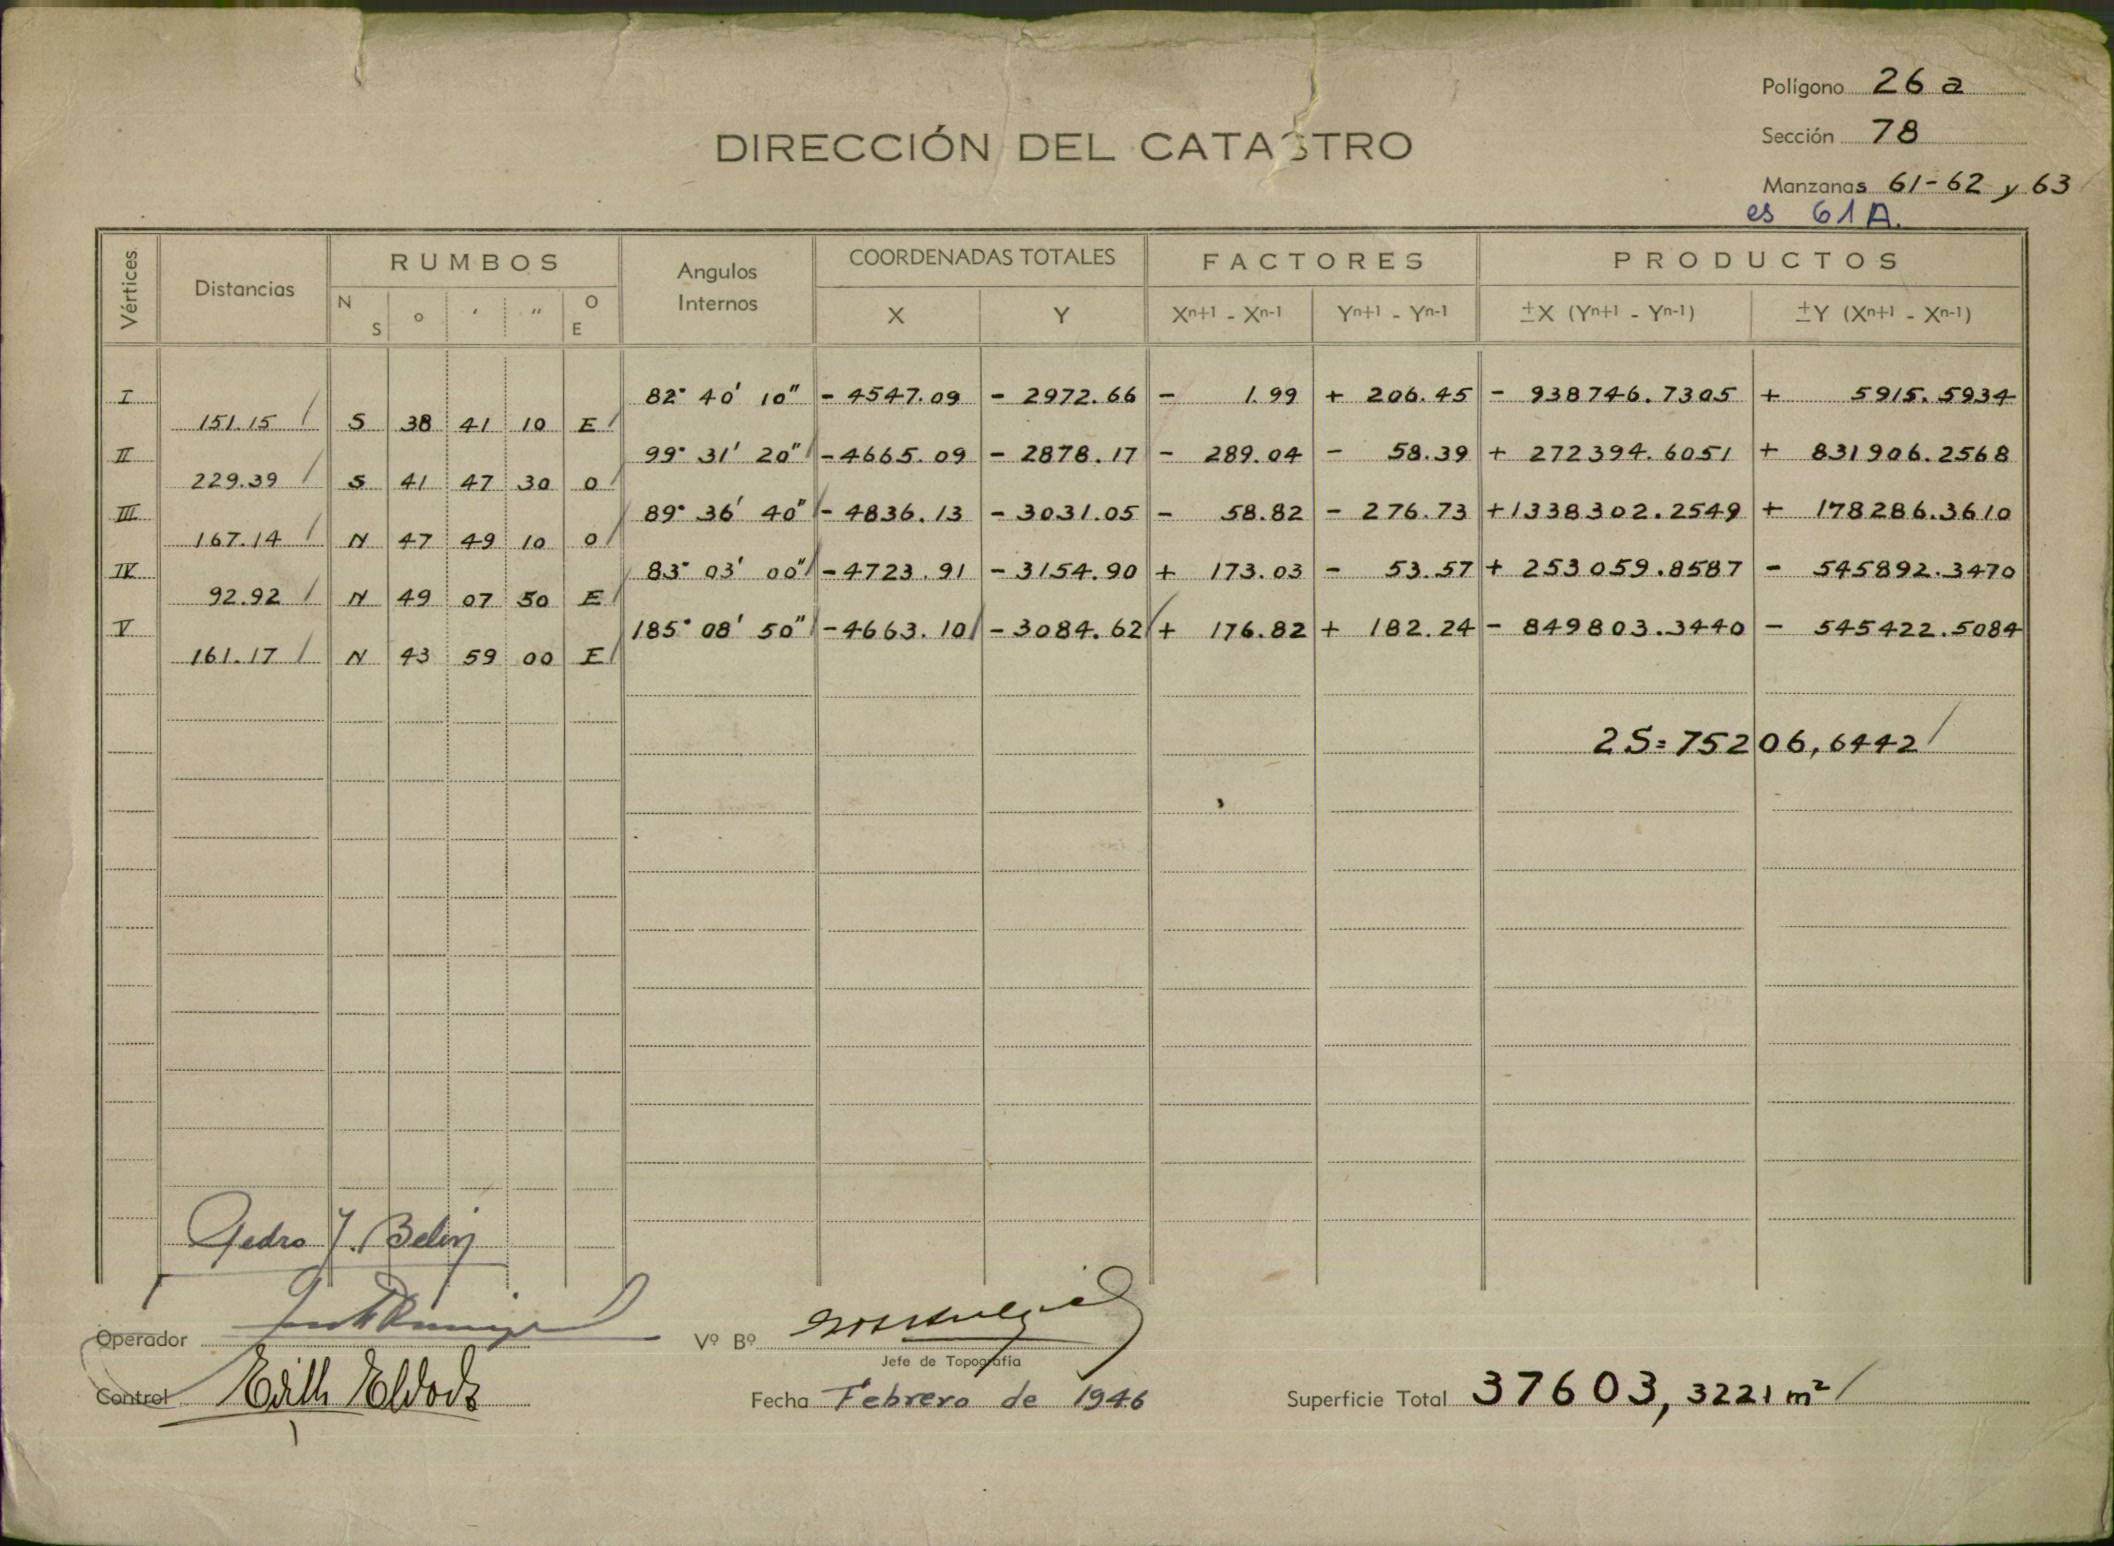 Polígono 26 a
DIRECCIÓN DEL CATASTRO
Sección 78
Manzanas 61-62 y 63
es 61A.
Vértices Distancias RUMBOS Angulos Internos COORDENADAS TOTALES FACTORES PRODUCTOS
N S ° ′ ″ O E X Y Xⁿ⁺¹ - Xⁿ⁻¹ Yⁿ⁺¹ - Yⁿ⁻¹ ±X (Yⁿ⁺¹ - Yⁿ⁻¹) ±Y (Xⁿ⁺¹ - Xⁿ⁻¹)
I 82° 40' 10" - 4547.09 - 2972.66 - 1.99 + 206.45 - 938746.7305 + 5915.5934
151.15 S 38 41 10 E
II 99° 31' 20" - 4665.09 - 2878.17 - 289.04 - 58.39 + 272394.6051 + 831906.2568
229.39 S 41 47 30 O
III 89° 36' 40" - 4836.13 - 3031.05 - 58.82 - 276.73 + 1338302.2549 + 178286.3610
167.14 N 47 49 10 O
IV 83° 03' 00" - 4723.91 - 3154.90 + 173.03 - 53.57 + 253059.8587 - 545892.3470
92.92 N 49 07 50 E
V 185° 08' 50" - 4663.10 - 3084.62 + 176.82 + 182.24 - 849803.3440 - 545422.5084
161.17 N 43 59 00 E
2S=75206,6442
Pedro J.
Operador
Vº Bº
Jefe de Topografía
Control
Fecha Febrero de 1946
Superficie Total 37603,3221 m²